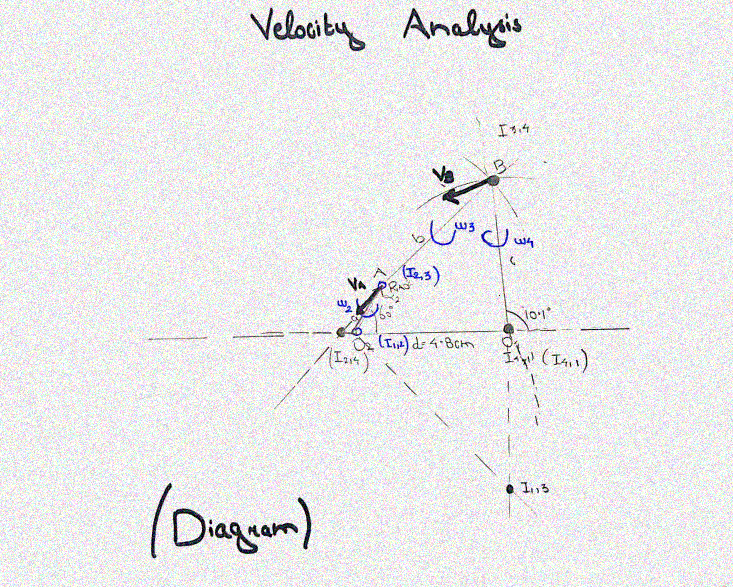 Velocity Analysis
I3,4
B
VB
ω3
b
ω4
c
A
(I2,3)
VA
ω2
a
60°
10·1°
O2
(I1,2)
d=4·8cm
(I2,4)
(I4,1)
I1,3
(Diagram)